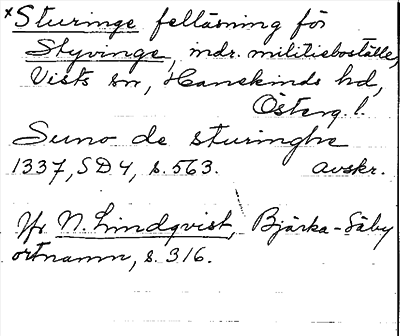 *Sturinge felläsning för
Styvinge, mdr. militieboställe,
Vists sn, Hanekinds hd,
Österg. l.
Suno de sturinghe
1337, SD 4, s. 563. avskr.
Jfr N. Lindqvist, Bjärka-Säby
ortnamn, s. 316.